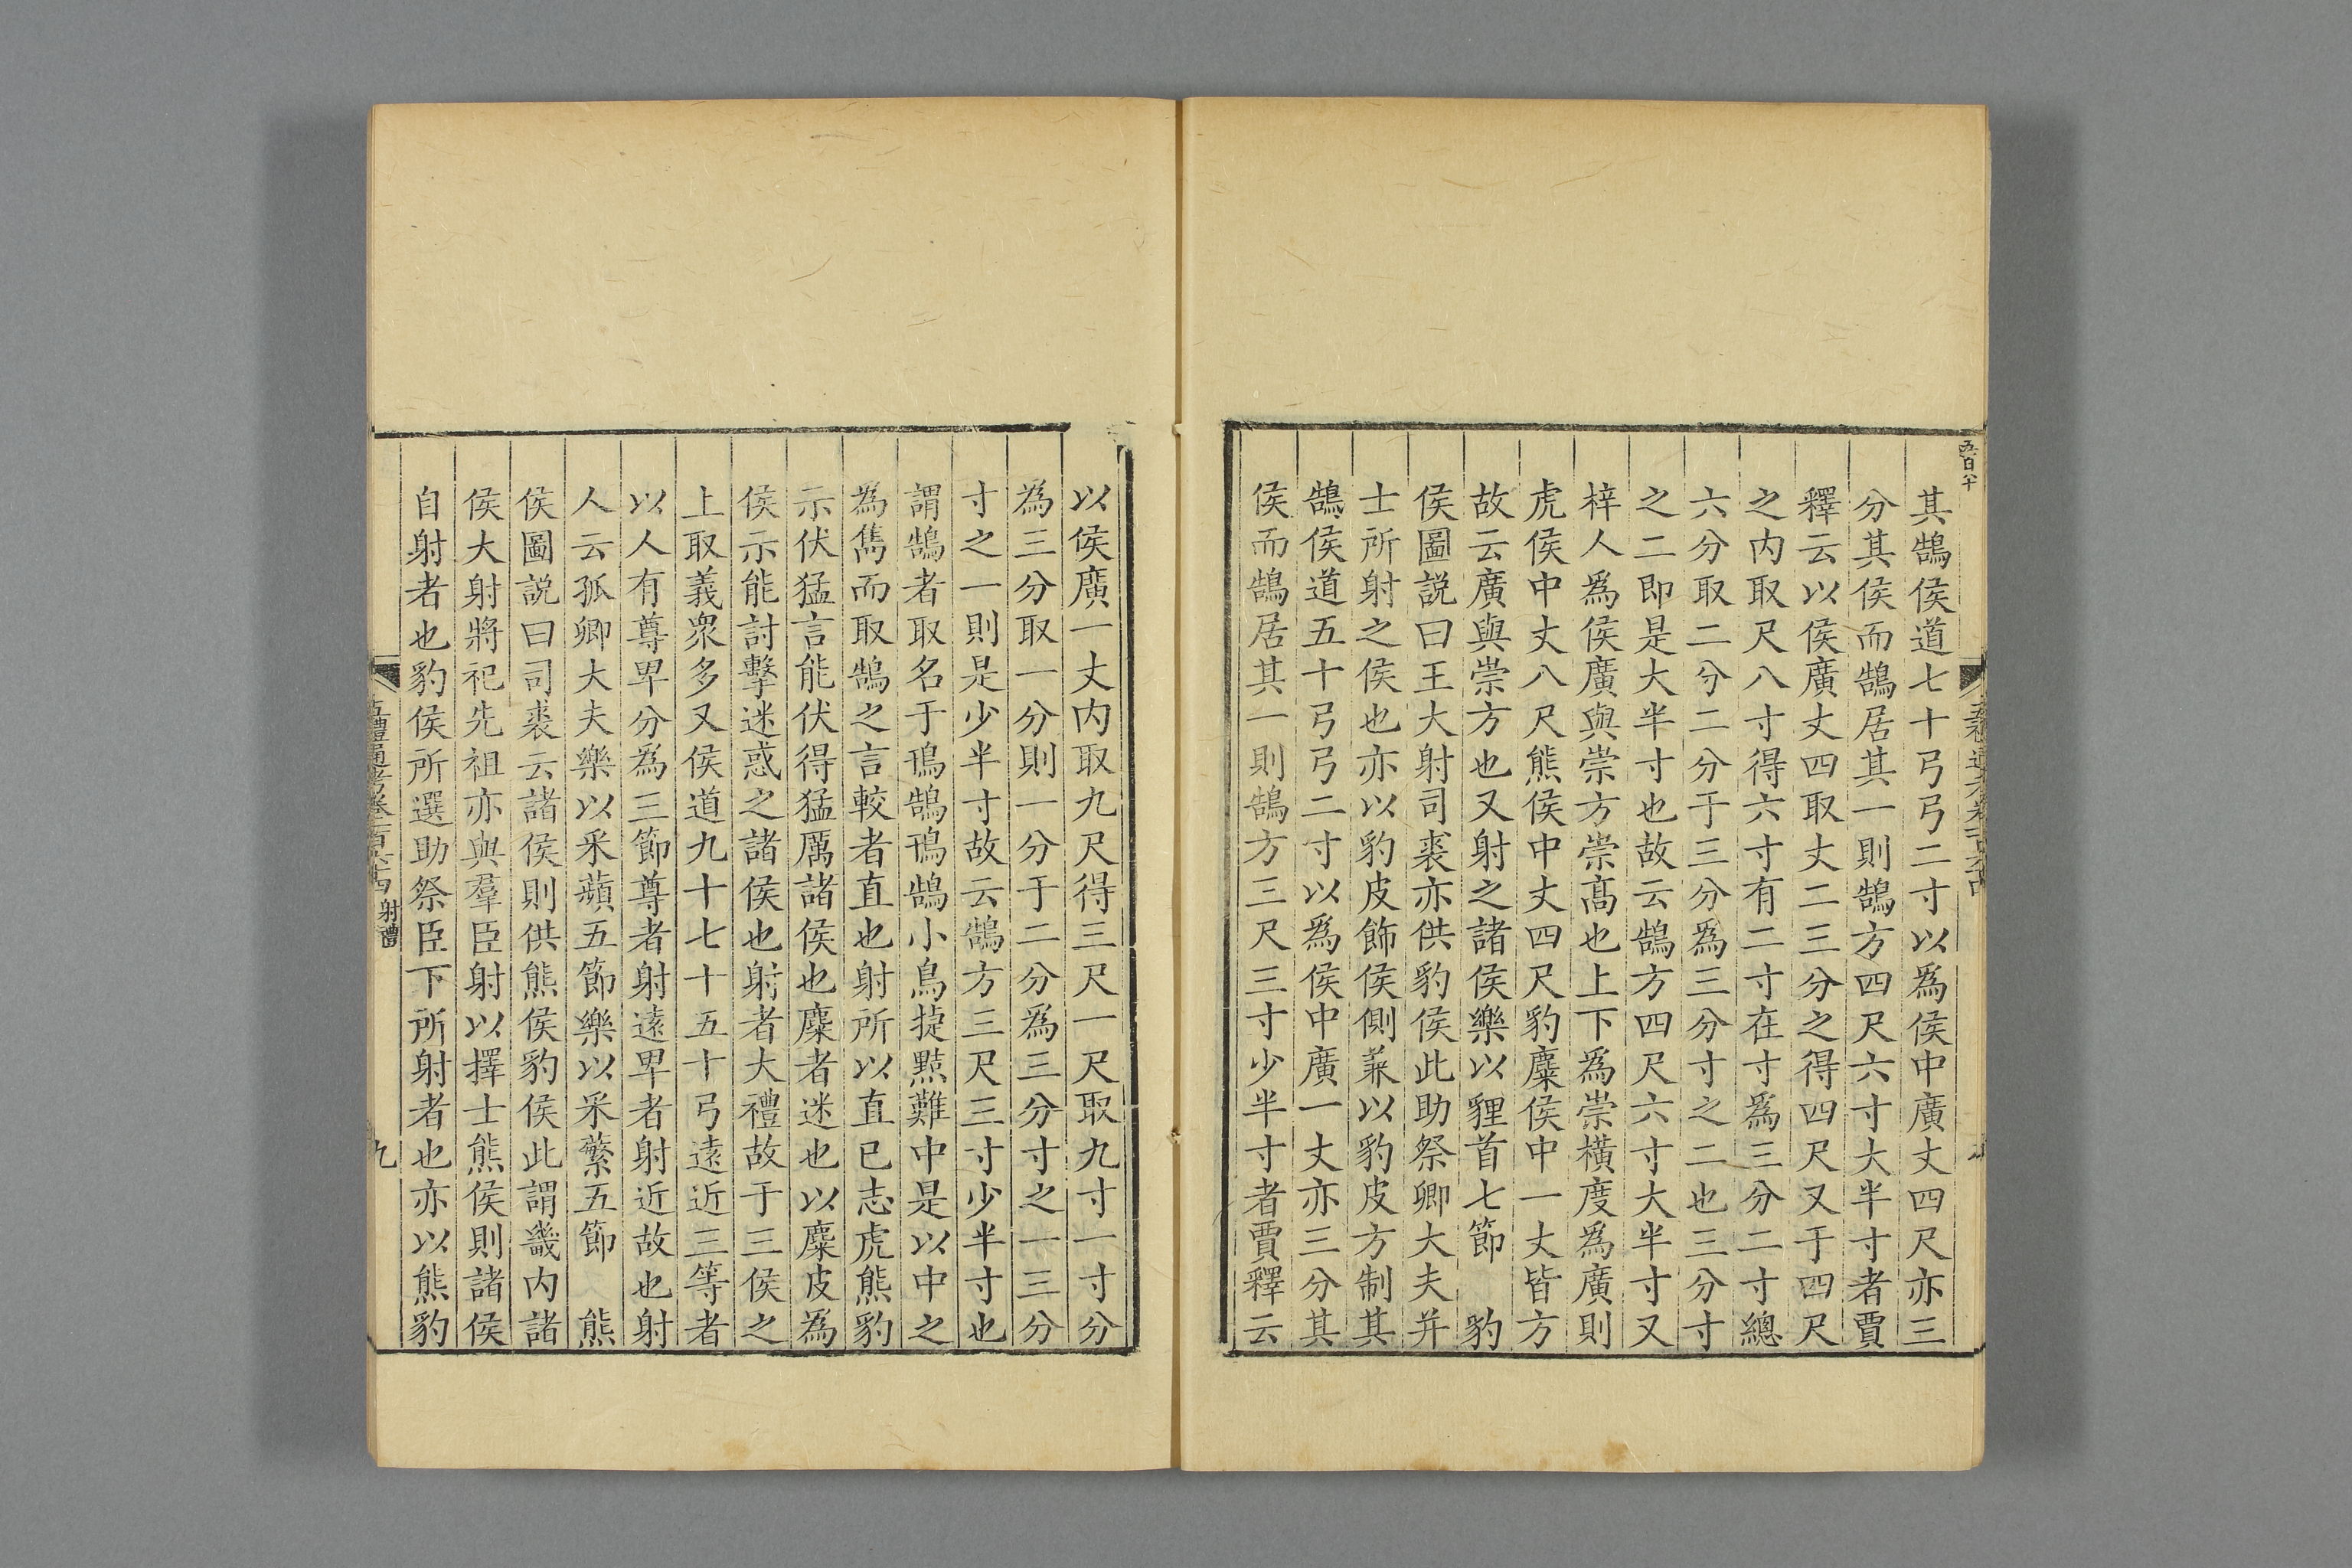 其鵠侯道七十弓弓二寸以爲侯中廣丈四尺亦三
分其侯而鵠居其一則鵠方四尺六寸大半寸者賈
釋云以侯廣丈四取丈二三分之得四尺又于四尺
之内取尺八寸得六寸有二寸在寸爲三分二寸總
六分取二分二分于三分爲三分寸之二也三分寸
之二即是大半寸也故云鵠方四尺六寸大半寸又
梓人爲侯廣與崇方崇高也上下爲崇橫度爲廣則
虎侯中丈八尺熊侯中丈四尺豹麋侯中一丈皆方
故云廣與崇方也又射之諸侯樂以貍首七節　豹
侯圖説曰王大射司裘亦供豹侯此助祭卿大夫并
士所射之侯也亦以豹皮飾侯側兼以豹皮方制其
鵠侯道五十弓弓二寸以爲侯中廣一丈亦三分其
侯而鵠居其一則鵠方三尺三寸少半寸者賈釋云
以侯廣一丈内取九尺得三尺一尺取九寸一寸分
為三分取一分則一分于二分為三分寸之一三分
寸之一則是少半寸故云鵠方三尺三寸少半寸也
謂鵠者取名于鳱鵠鳱鵠小鳥捷黠難中是以中之
為雋而取鵠之言較者直也射所以直已志虎熊豹
示伏猛言能伏得猛厲諸侯也麋者迷也以麋皮為
侯示能討擊迷惑之諸侯也射者大禮故于三侯之
上取義衆多又侯道九十七十五十弓遠近三等者
以人有尊卑分為三節尊者射遠卑者射近故也射
人云孤卿大夫樂以采蘋五節樂以采蘩五節　熊
侯圖説曰司裘云諸侯則供熊侯豹侯此謂畿内諸
侯大射將祀先祖亦與羣臣射以擇士熊侯則諸侯
自射者也豹侯所選助祭臣下所射者也亦以熊豹
五禮通考卷一百六十四 射禮
九